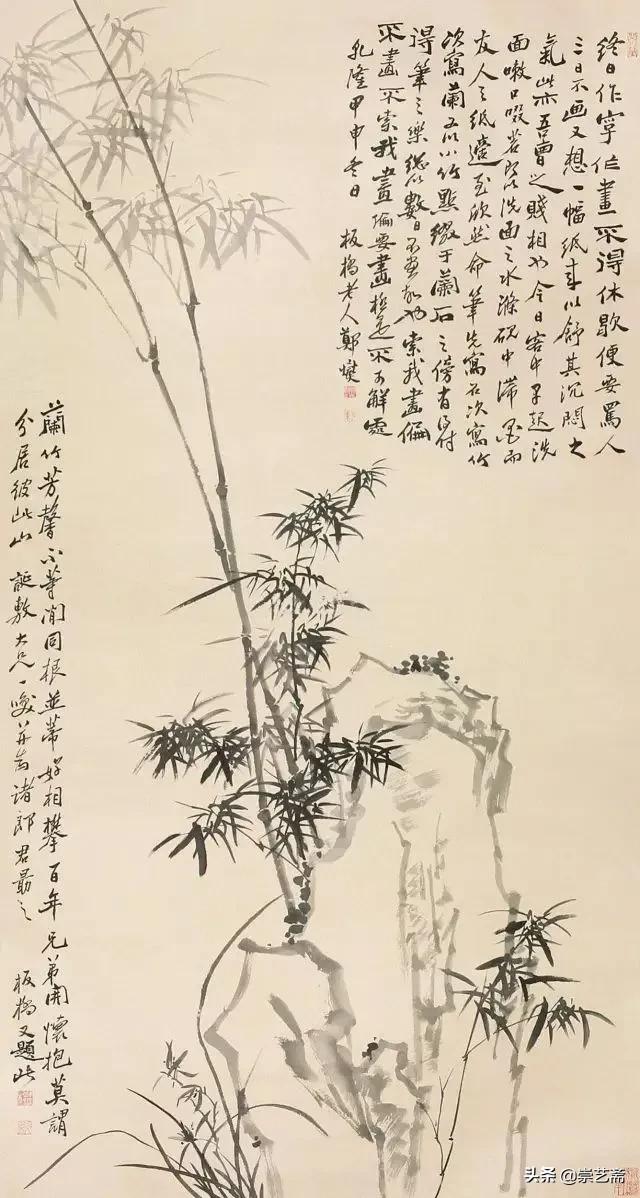 終日作字作畫不得休歇便要罵人
三日不画又想一幅紙來以舒其沉悶之
氣此亦吾曹之賤相也今日客中早起洗
面嗽口啜茗即以洗面之水滌硯中滯墨而
友人之紙適至欣然命筆先寫石次寫竹
次寫蘭又以小竹點綴于蘭石之傍有
得筆之樂總以數日不畫故也索我畫偏
不畫不索我畫偏要畫極是不可解處
乾隆甲申冬日 板橋老人鄭燮
蘭竹芳馨不等閒同根並蒂好相攀百年兄弟開懷抱莫謂
分居彼此山 誕敷大兄一咲并為諸郎君勗之 板橋又題此
头条 @崇艺斋